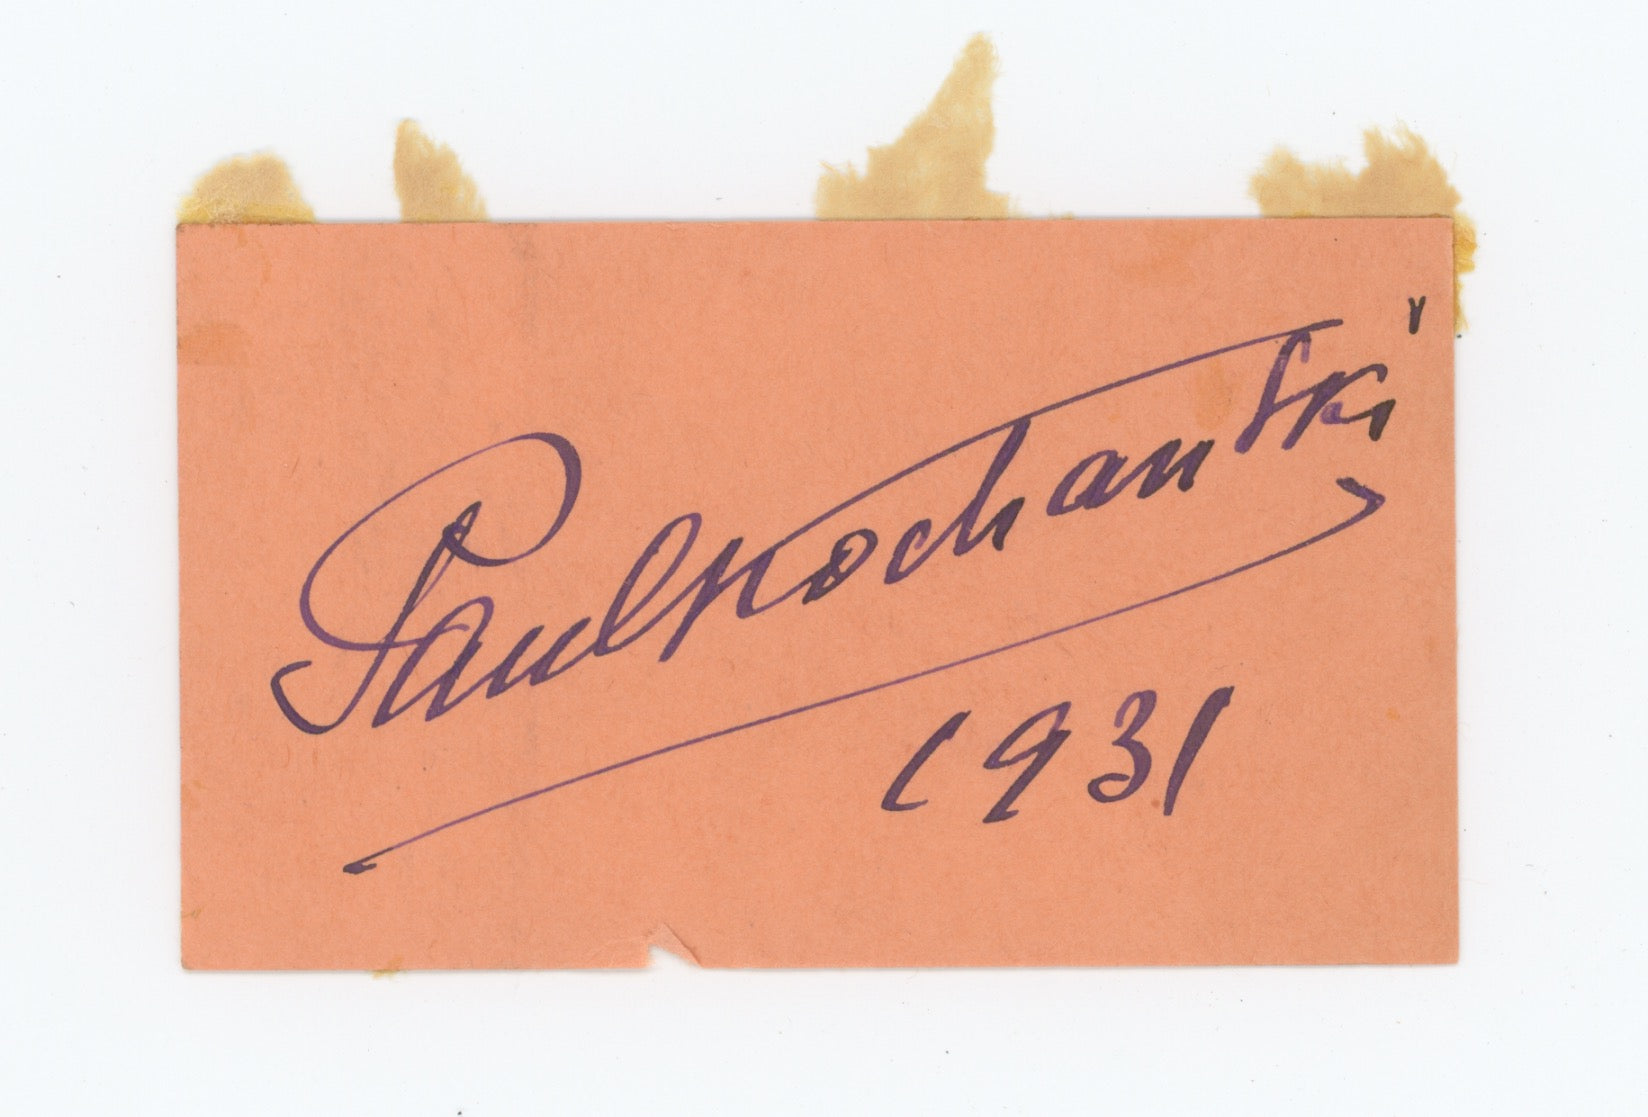 Paul Kochanski
1931